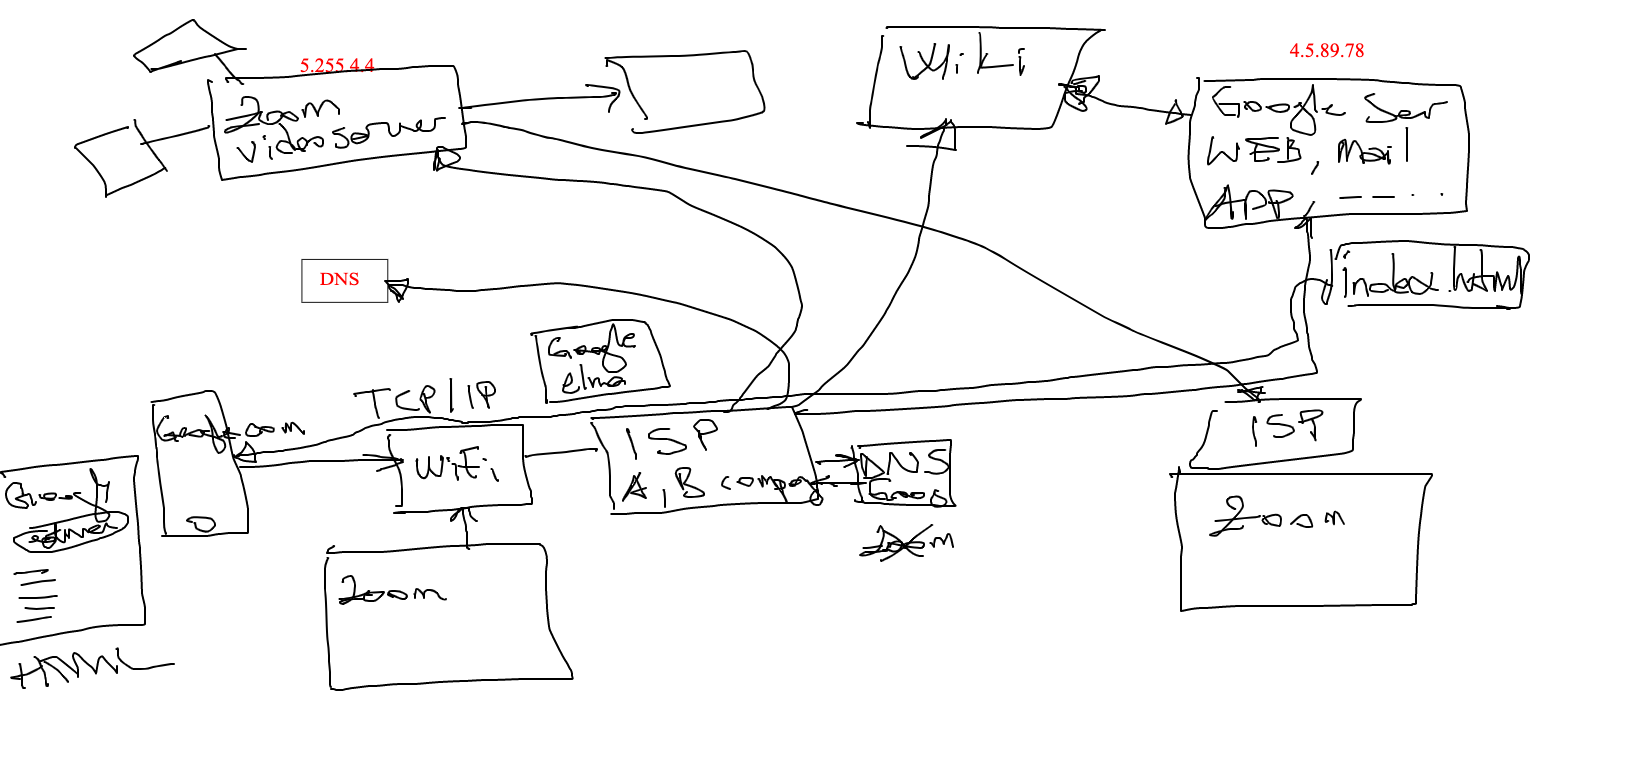 5.255.4.4
Zoom
videoserver
Wiki
4.5.89.78
Google Ser
WEB, Mail
APP, ----..
index.html
DNS
Google
elma
TCP/IP
Google.com
WiFi
ISP
A, B company
DNS
Goog
Zoom
ISP
Zoom
Zoom
HTML